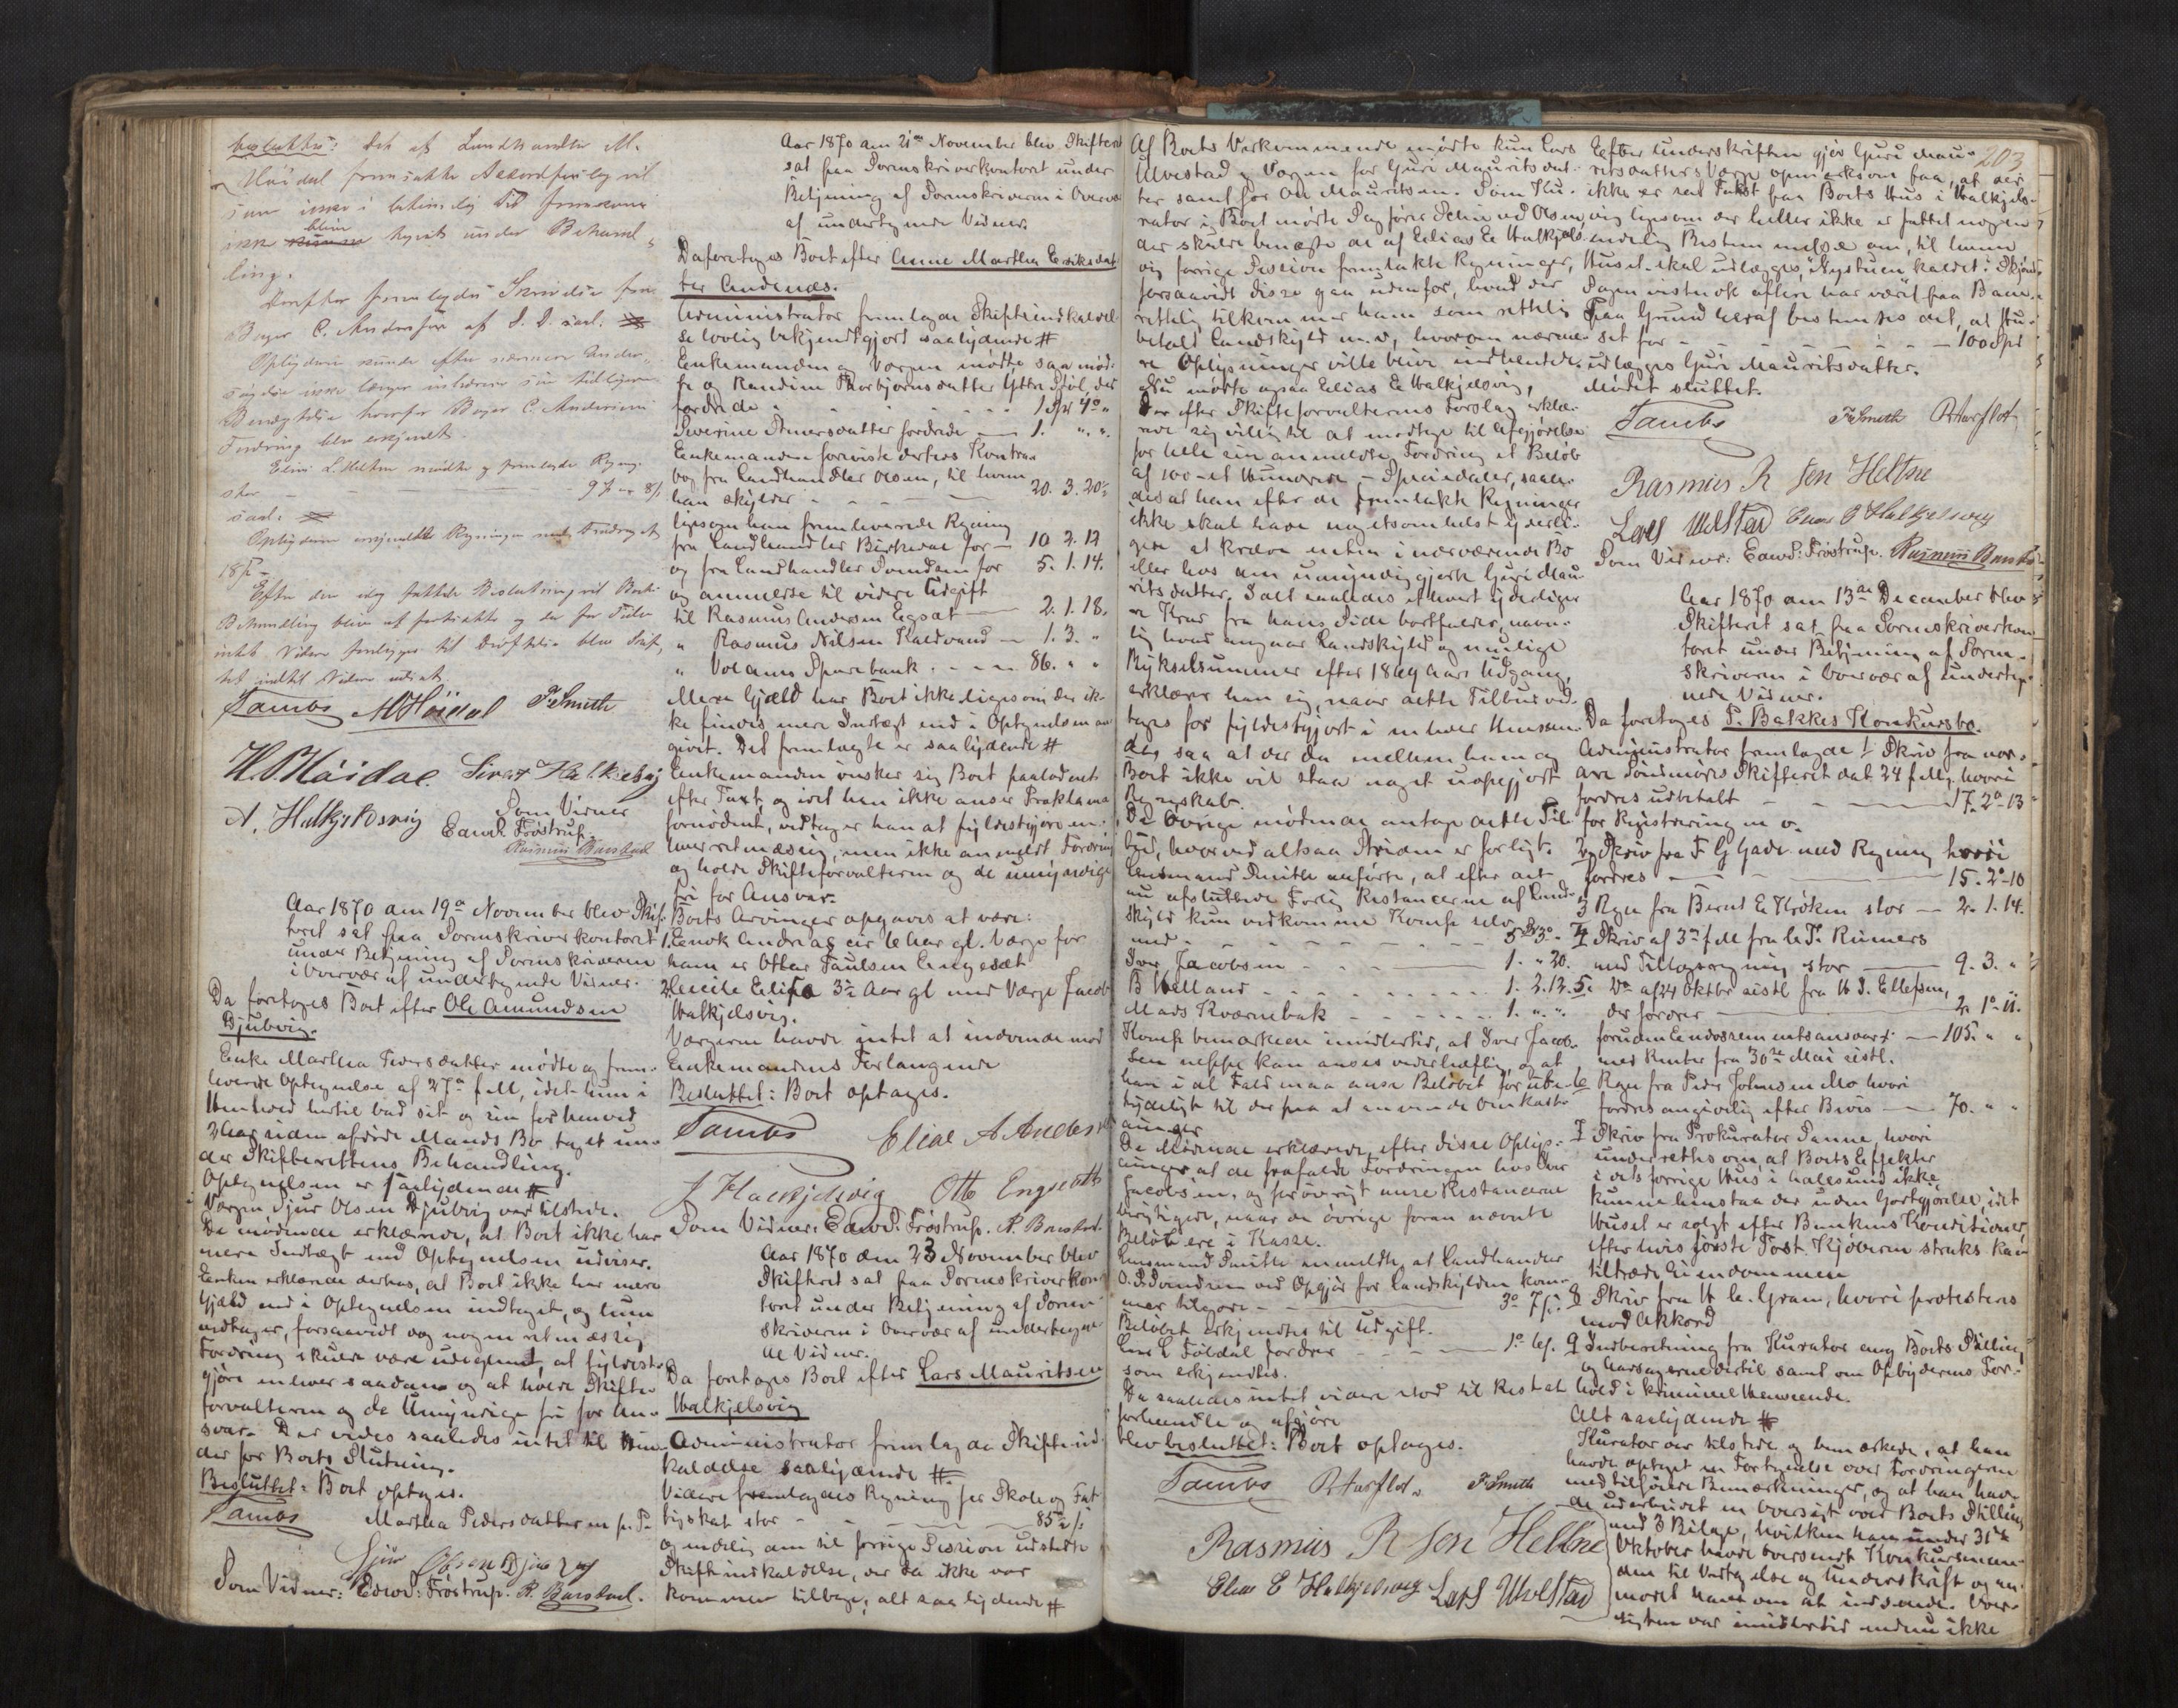 besluttet: Det af Landhandler M.
Høidal fremsatte Akkordforslag vil
blive
ikke tages under Behand-
ling.
Derefter fremlagdes Skrivelse fra
Boger C. Andersen af S. D. saal. #
Opbyderen kunde efter nærmere Under-
søgelse ikke længer vedhære sin tidligere
Benægtelse hvorfor Boger C. Andersens
Fordring blev erkjendt.
Elias L. Heltne mødte og fremlagde Regning
stor - - - 97
saal. #
Opbyderen erkjendte Regningen
18 ß
Efter den idag fattede Beslutning vil Boets
Behandling blive at fortsætte og da for Tiden
intet Videre foreligger til Drøftelse blev Skif-
tet indtil Videre udsat.
Tambs M Høidal F Smith
H. P Høidal. Sivert Halkjelsvig
A. Halkjelsvig Som Vidner
Edvd. Frøstrup.
Rasmus Barstad
Aar 1870 den 19de November blev Skif-
teret sat paa Sorenskriverkontoret
under Betjening af Sorenskriveren
i Overvær af undertegnede Vidner.
Da foretages Boet efter Ole Amundsen
Djubvig.
Enke Martha Pedersdatter mødte og frem-
leverede Optegnelse af 27de f. M., idet hun i
Henhold hertil bad sit og sin for henved
2 Aar siden afdøde Mands Bo taget un-
der Skifterettens Behandling.
Optegnelsen er saalydende #
Værgen Sjur Olsen Djubvig var tilstede.
De mødende erklærede, at Boet ikke har
mere Indtægt end Optegnelsen udviser.
Enken erklærede derhos, at Boet ikke har mere
Gjæld end i Optegnelsen indtaget, og hun
vedtager, forsaavidt dog nogen retmæssig
Fordring skulde være udeglemt, at fyldest-
gjøre enhver saadan og at holde Skifte-
forvalteren og de Umyndige fri for An-
svar. Der vides saaledes intet til Hin-
der for Boets Slutning.
Besluttet: Boet optages.
Tambs Martha Pedersdatter m. p. P.
Sjur Olsen Djubvig
Som Vidner: Edvd: Frøstrup. R. Barstad.
Aar 1870 den 21de November blev Skifteret
sat paa Sorenskriverkontoret under
Betjening af Sorenskriveren i Overvær
af undertegnede Vidner.
Da foretages Boet efter Anne Martha Eriksdat-
ter Andenæs.
Administrator fremlagde Skifteindkaldel-
se lovlig bekjendtgjort saalydende #
Enkemanden og Værgen mødte saa mød-
te og Randine Thorbjørnsdatter Ytre Støl, der
fordrede - - - 1 Spd 4 "
Severine Stenersdatter fordrede — 1. " "
Enkemanden foreviste derhos Kontra-
bog fra Landhandler Olsen, til hvem
han skylder - - - 20. 3. 20½
ligesom han fremleverede Regning
fra Landhandler Birkevold for - 10 2. 12
og fra Landhandler Svendsen for 5. 1. 14.
og anmeldte til videre Udgift
til Rasmus Andersen Egset — 2. 1. 18.
" Rasmus Nilsen Kaldvand — 1. 3. "
" Voldens Sparebank - - - 86. " "
Mere Gjæld har Boet ikke ligesom der ik-
ke findes mere Indtægt end i Optegnelsen an-
givet. Det fremlagte er saalydende #
Enkemanden ønsker sig Boet paalodnet
efter Taxt, og idet han ikke anser Proklama
fornødent, vedtager han at fyldestgjøre en-
hver retmæssig, men ikke anmeldt Fordring
og holde Skifteforvalteren og de umyndige
fri for Ansvar.
Boets Arvinger opgaves at være:
1. Enok Andreas cir 6 Aar gl. Værge for
ham er Otter Paulsen Engesæt
2. Cecilie Elise 3½ Aar gl med Værge Jacob
Halkjelsvig.
Værgerne havde intet at indvende mod
Enkemandens Forlangende
Besluttet: Boet optages.
Tambs Elias A Anders
J Halkjelsvig Otte Engesæth
Som Vidner: Edvd: Frøstrup. R. Barstad.
Aar 1870 den 23 November blev
Skifteret sat paa Sorenskriverkon-
toret under Betjening af Soren-
skriveren i Overvær af undertegne-
de Vidner.
Da foretages Boet efter Lars Mauritsen
Halkjelsvig
Administrator fremlagde Skifteind-
kaldelse saalydende #.
Videre fremlagdes Regning for Skole og Fat-
tigskat stor - - - 85½ ß
og endelig den til forrige Session udstedte
Skifteindkaldelse, der da ikke var
kommen tilbage, alt saalydende #
203
Af Boets Vedkommende mødte kun Lars
Ulvestad, Værgen for Guri Mauritsdat-
ter samt for Ole Mauritsen. Som Ku-
rator i Boet mødte Sagfører
der skulde benægte de af Elias E Halkjels-
vig forrige Session fremlakte Regninger,
forsaavidt disse gaa udenfor, hvad der
rettelig tilkommer ham som rettelig
betalt Landskyld m.v., hvorom nærme-
re Oplysninger ville blive indhentede.
Nu mødte ogsaa Elias E Halkjelsvig,
der efter Skifteforvalterens Forslag erklæ-
rede sig villig til at modtage til Afgjørelse
for hele sin anmeldte Fordring et Beløb
af 100 - et Hundrede - Speciedaler, saale-
des at han efter de fremlakte Regninger
ikke skal have nogetsomhelst yderli-
gere at kræve enten i nærværende Bo
eller hos den umyndiggjorte Guri Mau-
ritsdatter, Idet saaledes ethvert yderliger-
e Krav fra hans Side bortfalder, navn-
lig hvad angaar Landskyld og mulige
Bykselsummer efter 1869 Aars Udgang,
erklærer han sig, naar dette Tilbud ved-
tages for fyldestgjort i enhver Henseen-
de, saa at der da mellem ham og
Boet ikke vil staa noget uopgjort
Regnskab.
De øvrige mødende antage dette Til-
bud, hvorved altsaa Striden er forligt.
Lensmand Smith anførte, at efter det
nu afsluttede Forlig Restancerne af Land-
skyld kun vedkomme Komp selv
med - - -
Iver Jacobsen - - - 1. " 20.
B Welland - - - 1. 2. 12.
Mads Kværnebak - - - 1. " ".
Komp bemærkede imidlertid, at Iver Jacob-
sen neppe kan anses vederhæftig, og at
han i al Fald maa anse Beløbet for ube-
tydeligt til derpaa at anvende Omkost-
ninger
De Mødende erklærede, efter disse Oplys-
ninger at de frafalde Fordringen hos Iver
Jacobsen, og forøvrigt anse Restancerne
berigtigede, naar de øvrige foran nævnte
Beløb ere i Kasse.
Lensmand Smith anmeldte, at Landhandler
O. Svendsen ved Opgjør for Landskylden kom-
mer tilgode - - - 3 7 ß.
Beløbet erkjendtes til Udgift.
Lars L Følsdal fordrer - - -
som erkjendtes.
Da saaledes intet videre stod til Rest at
forhandle og afgjøre
blev besluttet: Boet optages.
Tambs R Aarflot. F Smith
Rasmus R Sen Heltne
Elias E Halkjelsvig Lars Ulvestad
Efter Underskriften gjør Guri Mau-
ritsdatters Værge opmærksom paa, at der
ikke er sat Takst paa Boets Hus i Halkjels-
vig ligesom der heller ikke er fattet nogen
endelig Bestemmelse om, til hvem
Huset skal udlægges, "Nystuen" kaldet: Skjønt
Sagen vistnok oftere har været paa Bane.
Paa Grund heraf bestemtes det, at Hu-
set for - - - 100 Spd
udlægges Guri Mauritsdatter.
Mødet sluttet.
Tambs F Smith R Aarflot
Rasmus R Sen Heltne
Lars Ulvestad Elias E Halkjelsvig
Som Vidner: Edvd: Frøstrup. Rasmus Barstad
Aar 1870 den 13de December blev
Skifteret sat paa Sorenskriverkon-
toret under Betjening af Soren-
skriveren i Overvær af underteg-
nede Vidner.
Da foretages P. Bakkes Konkursbo.
Administrator fremlagde 1 Skriv fra nor-
dre Søndmøres Skifteret dat 24 f M, hvori
fordres udbetalt - - - 17. 2. 13
for Registrering m v.
2 Skriv fra F G Gade med Regning hvori
fordres - - - 15. 2. 10
3 Regn fra Bernt E Krøken stor — 2. 1. 14.
4 Skriv af 3de f M fra
med Tillægsregning stor — 9. 3. "
5. Do af 24 Oktbr sidstl fra H. J. Ellefsen,
der fordrer -
foruden Endossementsansvaret - 105. " "
med Renter fra 30te Mai sidstl.
6 Regn fra Peder Johnsen Mo hvori
fordres angivelig efter Bevis — 70. " "
7 Skriv fra Prokurator Sanne, hvori
underrettes om, at Boets Effekter
i dets forrige Hus i Aalesund ikke
kunne henstaa der uden Godtgjørelse, idet
Huset er solgt efter Bankens Konditioner,
efter hvis første Post Kjøberen straks kan
tiltræde Eiendommen
8 Skriv fra H. C. Gram, hvori protesteres
mod Akkord
9 Indberetning fra Kurator ang Boets Stilling
og Aarsagerne dertil samt om Opbyderens For-
hold i kriminel Henseende.
Alt saalydende #
Kurator var tilstede og bemærkede, at han
havde optaget en Fortegnelse over Fordringerne
med tilføiede Bemærkninger, og at han hav-
de udarbeidet en Oversigt over Boets Stilling
med 3 Bilage, hvilken han under 31te
Oktober havde oversendt Konkursman-
den til Vedtagelse og Underskrift og an-
modet ham om at indsende. Over-
sigten var imidlertid endnu ikke